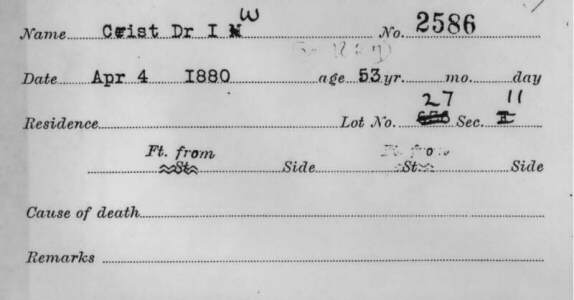 Name Crist Dr I W No. 2586
Date Apr 4 1880 age 53 yr. mo. day
Residence Lot No. 27 Sec. 11
Ft. from Ft. from
St. Side St. Side
Cause of death
Remarks